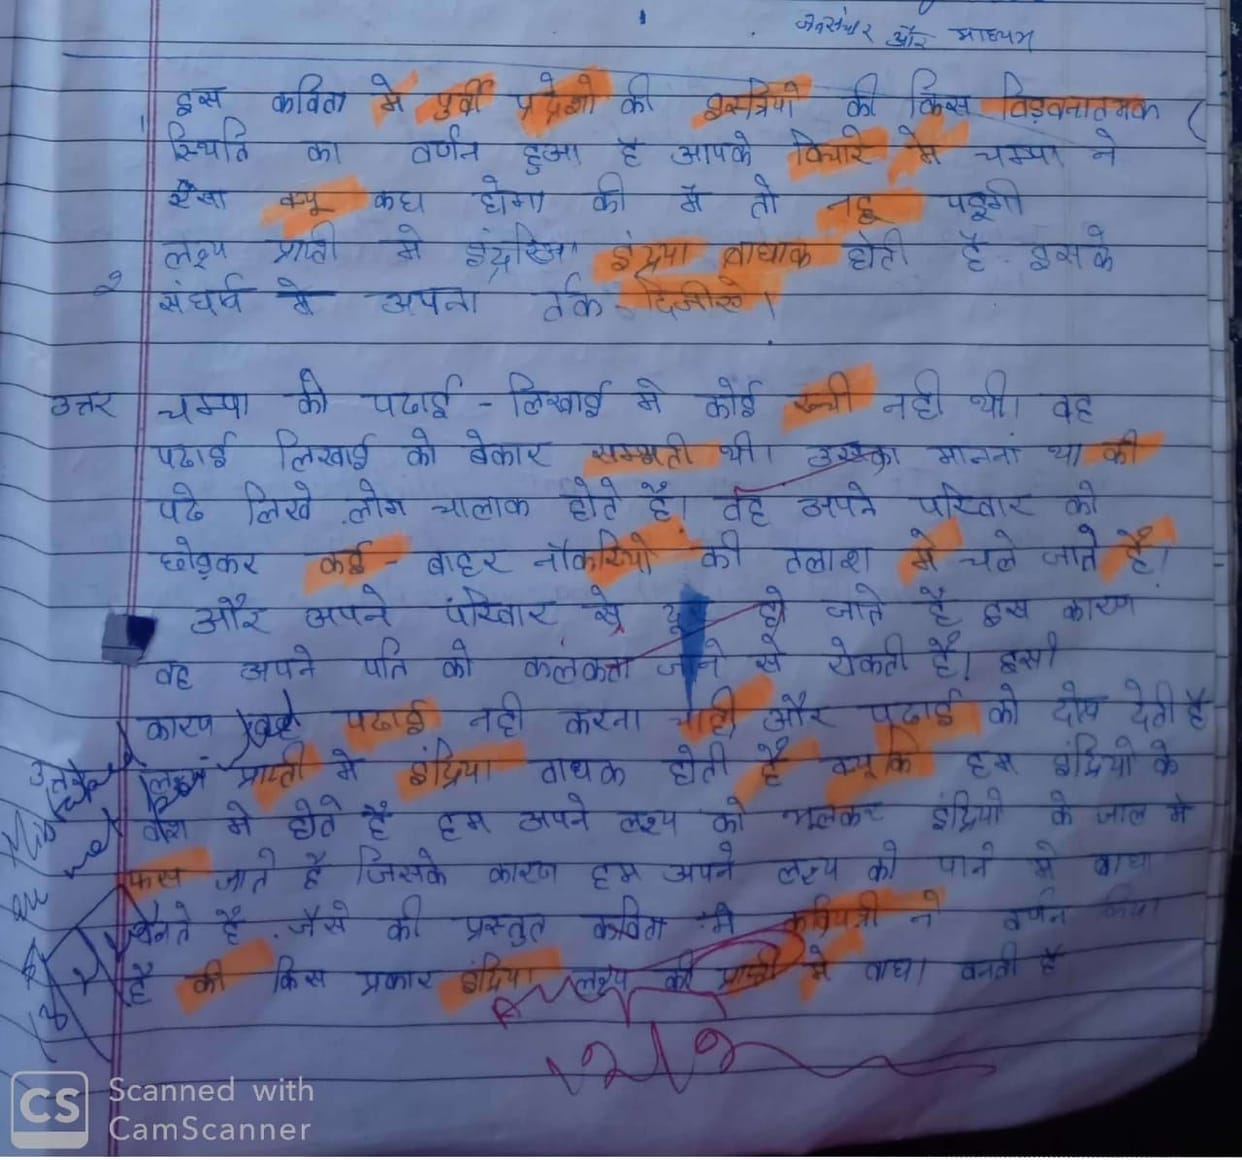 जनसंचार और माध्यम
इस कविता मे पुर्वी प्रदेशो की इस्त्रियो की किस विडवनात्मक
स्थिति का वर्णन हुआ है आपके विचारे मे चम्पा ने
ऐसा क्यू कहा होगा की मैं तो नहू पढूगी
लक्ष्य प्राप्ती मे इंद्रिया बाधाक होती है इसके
संघर्ष मे अपना र्तक दिजीये।
उत्तर चम्पा को पढाई - लिखाई मे कोई रूची नही थी। वह
पढाई लिखाई को बेकार सम्मती थी। उसका मानना था की
पढे लिखे लोग चालाक होते है। वह अपने परिवार को
छोड़कर कई - बाहर नौकरियो की तलाश मे चले जाते है।
और अपने परिवार से दूर हो जाते है इस कारण
वह अपने पति को कलंकता जाने से रोकती है। इसी
कारण वह पढाई नही करना चाही और पढाई को दोष देती है
लक्ष्य प्राप्ती मे इंद्रिया बाधक होती है क्यूकि हम इंद्रियो के
वश मे होते है हम अपने लक्ष्य को भूलकर इंद्रियो के जाल मे
फस जाते है जिसके कारण हम अपने लक्ष्य को पाने मे बाधा
बनते है. जैसे की प्रस्तुत कविता मे कवियत्री ने वर्णन किया
है की किस प्रकार इंद्रिया लक्ष्य की प्राप्ती मे बाधा बनती है
CS Scanned with
CamScanner